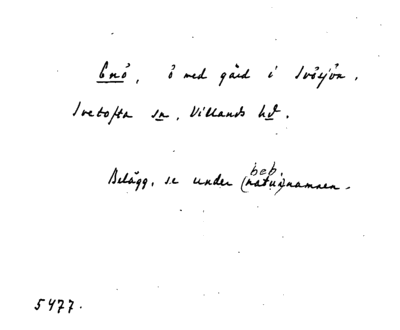 Enö, ö med gård i Ivösjön,
Ivetofta sn, Villands hd.
beb.
Belägg, se under (natur)namnen.
5477.